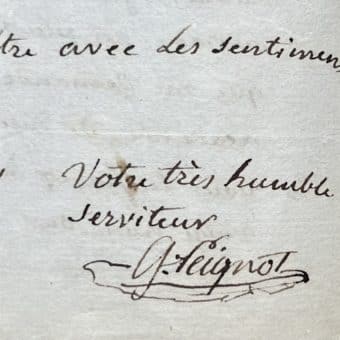 tre avec des sentimens
Votre très humble
serviteur
G. Peignot